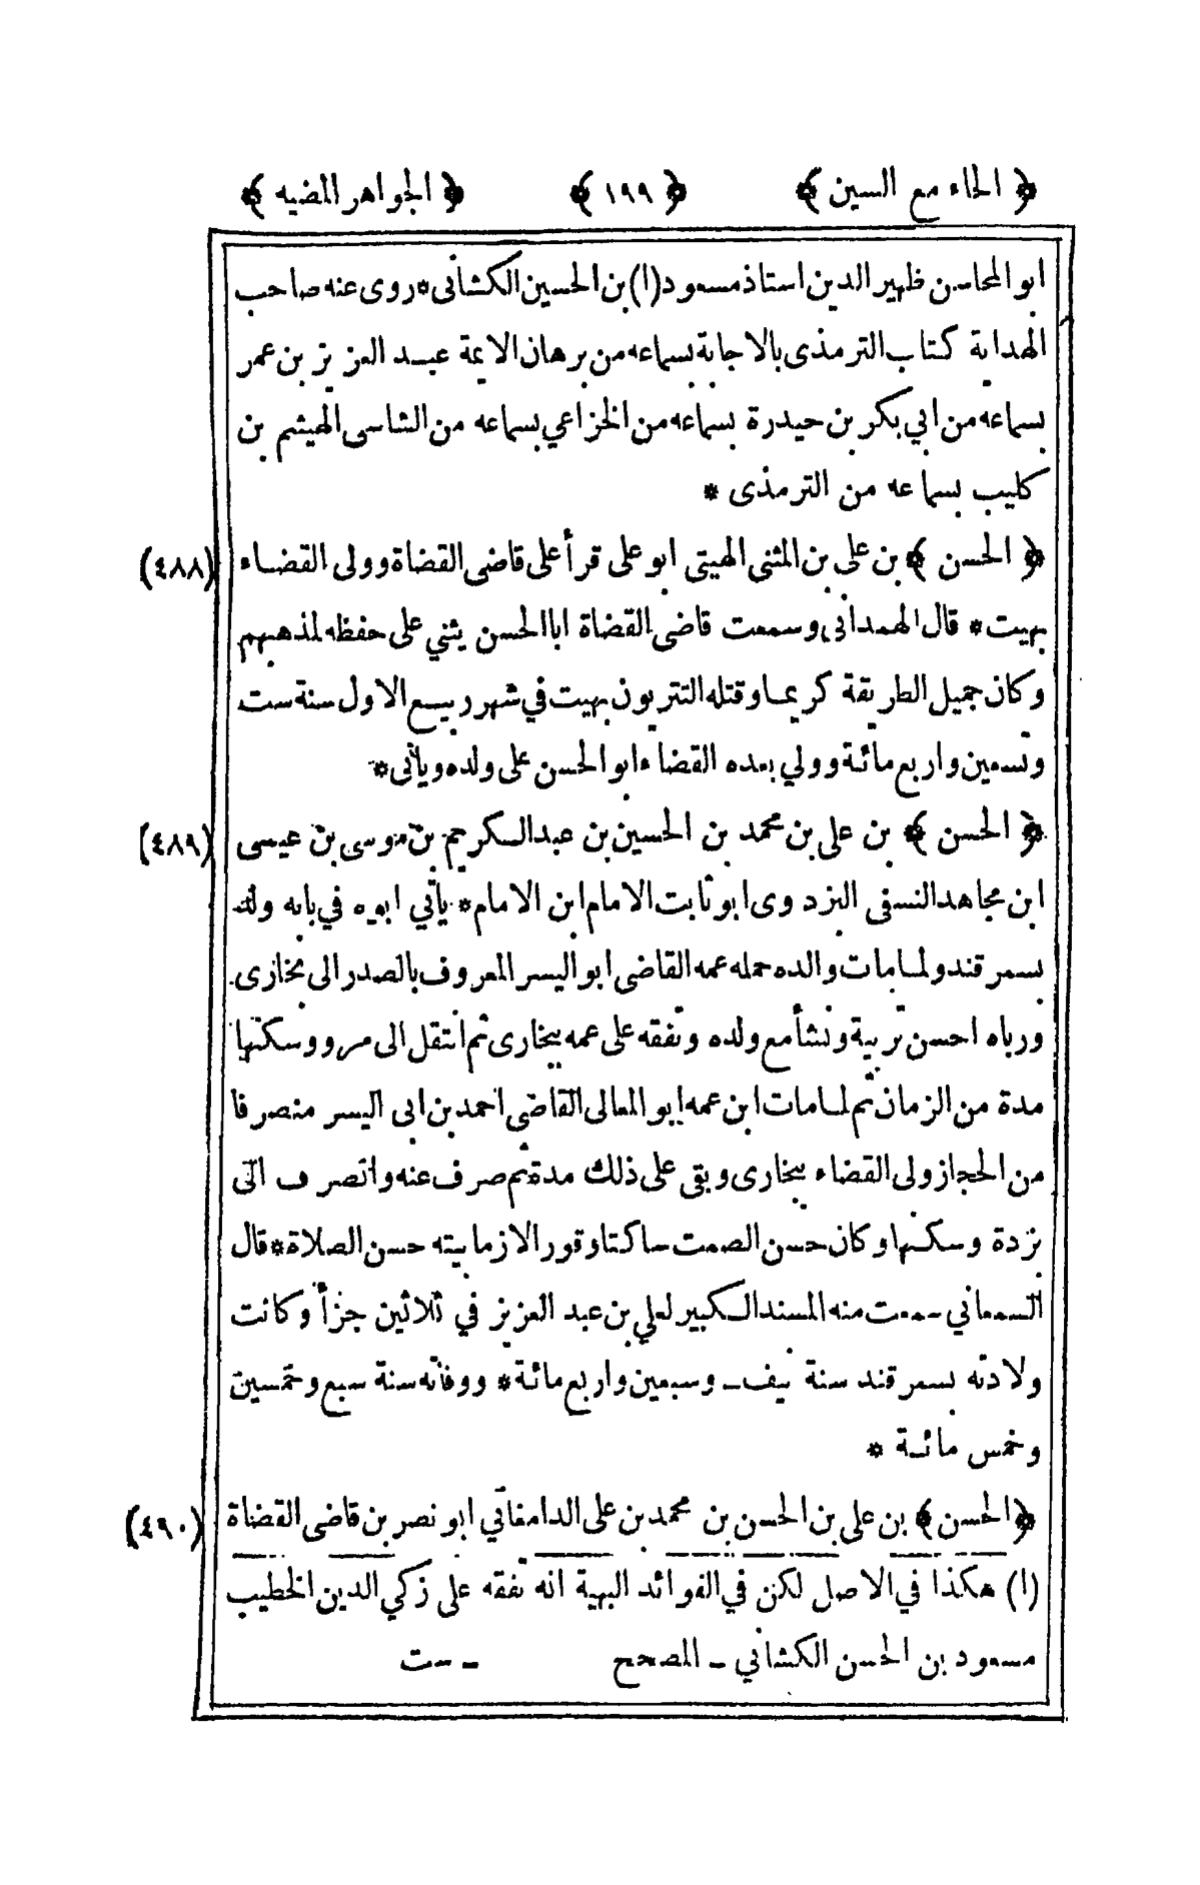 ﴿ الحاء مع السين ﴾ ﴿ ١٩٩ ﴾ ﴿ الجواهر المضيه ﴾
ابو المحاسن ظهير الدين استاذ مسعود (١) بن الحسين الكشانى * روى عنه صاحب
الهداية كتاب الترمذى بالاجازة بسماعه من برهان الايمة عبد العزيز بن عمر
بسماعه من ابي بكر بن حيدرة بسماعه من الخزاعي بسماعه من الشاسى الهيثم بن
كليب بسماعه من الترمذى *
﴿ الحسن ﴾ بن على بن المثنى الهيتى ابو على قرأ على قاضى القضاة وولى القضاء (٤٨٨)
بهيت * قال الهمدانى وسمعت قاضى القضاة ابا الحسن يثني على حفظه لمذهبهم
وكان جميل الطريقة كريما وقتله التتريون بهيت في شهر ربيع الاول سنة ست
وتسعين واربع مائة وولي بعده القضاء ابو الحسن على ولده ويأتى *
﴿ الحسن ﴾ بن على بن محمد بن الحسين بن عبد الكريم بن موسى بن عيسى (٤٨٩)
ابن مجاهد النسفى البزدوى ابو ثابت الامام ابن الامام * يأتي ابوه في بابه ولد
بسمرقند ولما مات والده حمله عمه القاضى ابو اليسر المعروف بالصدر الى بخارى
ورباه احسن تربية ونشأ مع ولده وتفقه على عمه ببخارى ثم انتقل الى مرو وسكنها
مدة من الزمان ثم لما مات ابن عمه ابو المعالى القاضى احمد بن ابى اليسر منصرفا
من الحجاز ولى القضاء ببخارى وبقى على ذلك مدة ثم صرف عنه وانصرف الى
بزدة وسكنها وكان حسن الصمت ساكتا وقورا لازما بيته حسن الصلاة * قال
السمعاني سمعت منه المسند الكبير لعلي بن عبد العزيز في ثلاثين جزأ وكانت
ولادته بسمرقند سنة نيف وسبعين واربع مائة * ووفاته سنة سبع وخمسين
وخمس مائة *
﴿ الحسن ﴾ بن على بن الحسن بن محمد بن على الدامغاني ابو نصر بن قاضى القضاة (٤٩٠)
(١) هكذا في الاصل لكن في الفوائد البهية انه تفقه على زكي الدين الخطيب
مسعود بن الحسن الكشاني ـ المصحح